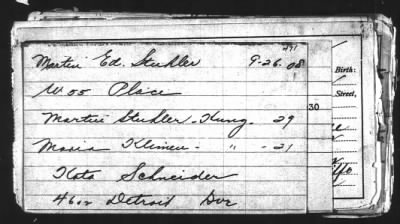 291
Martin Ed. Stuhler 9-26.08
Woo Place
Martin Stuhler - Hung. - 29
Maria Kleiner - " - 21
Kate Schneider
4602 Detroit Ave
30
Birth:
Street,